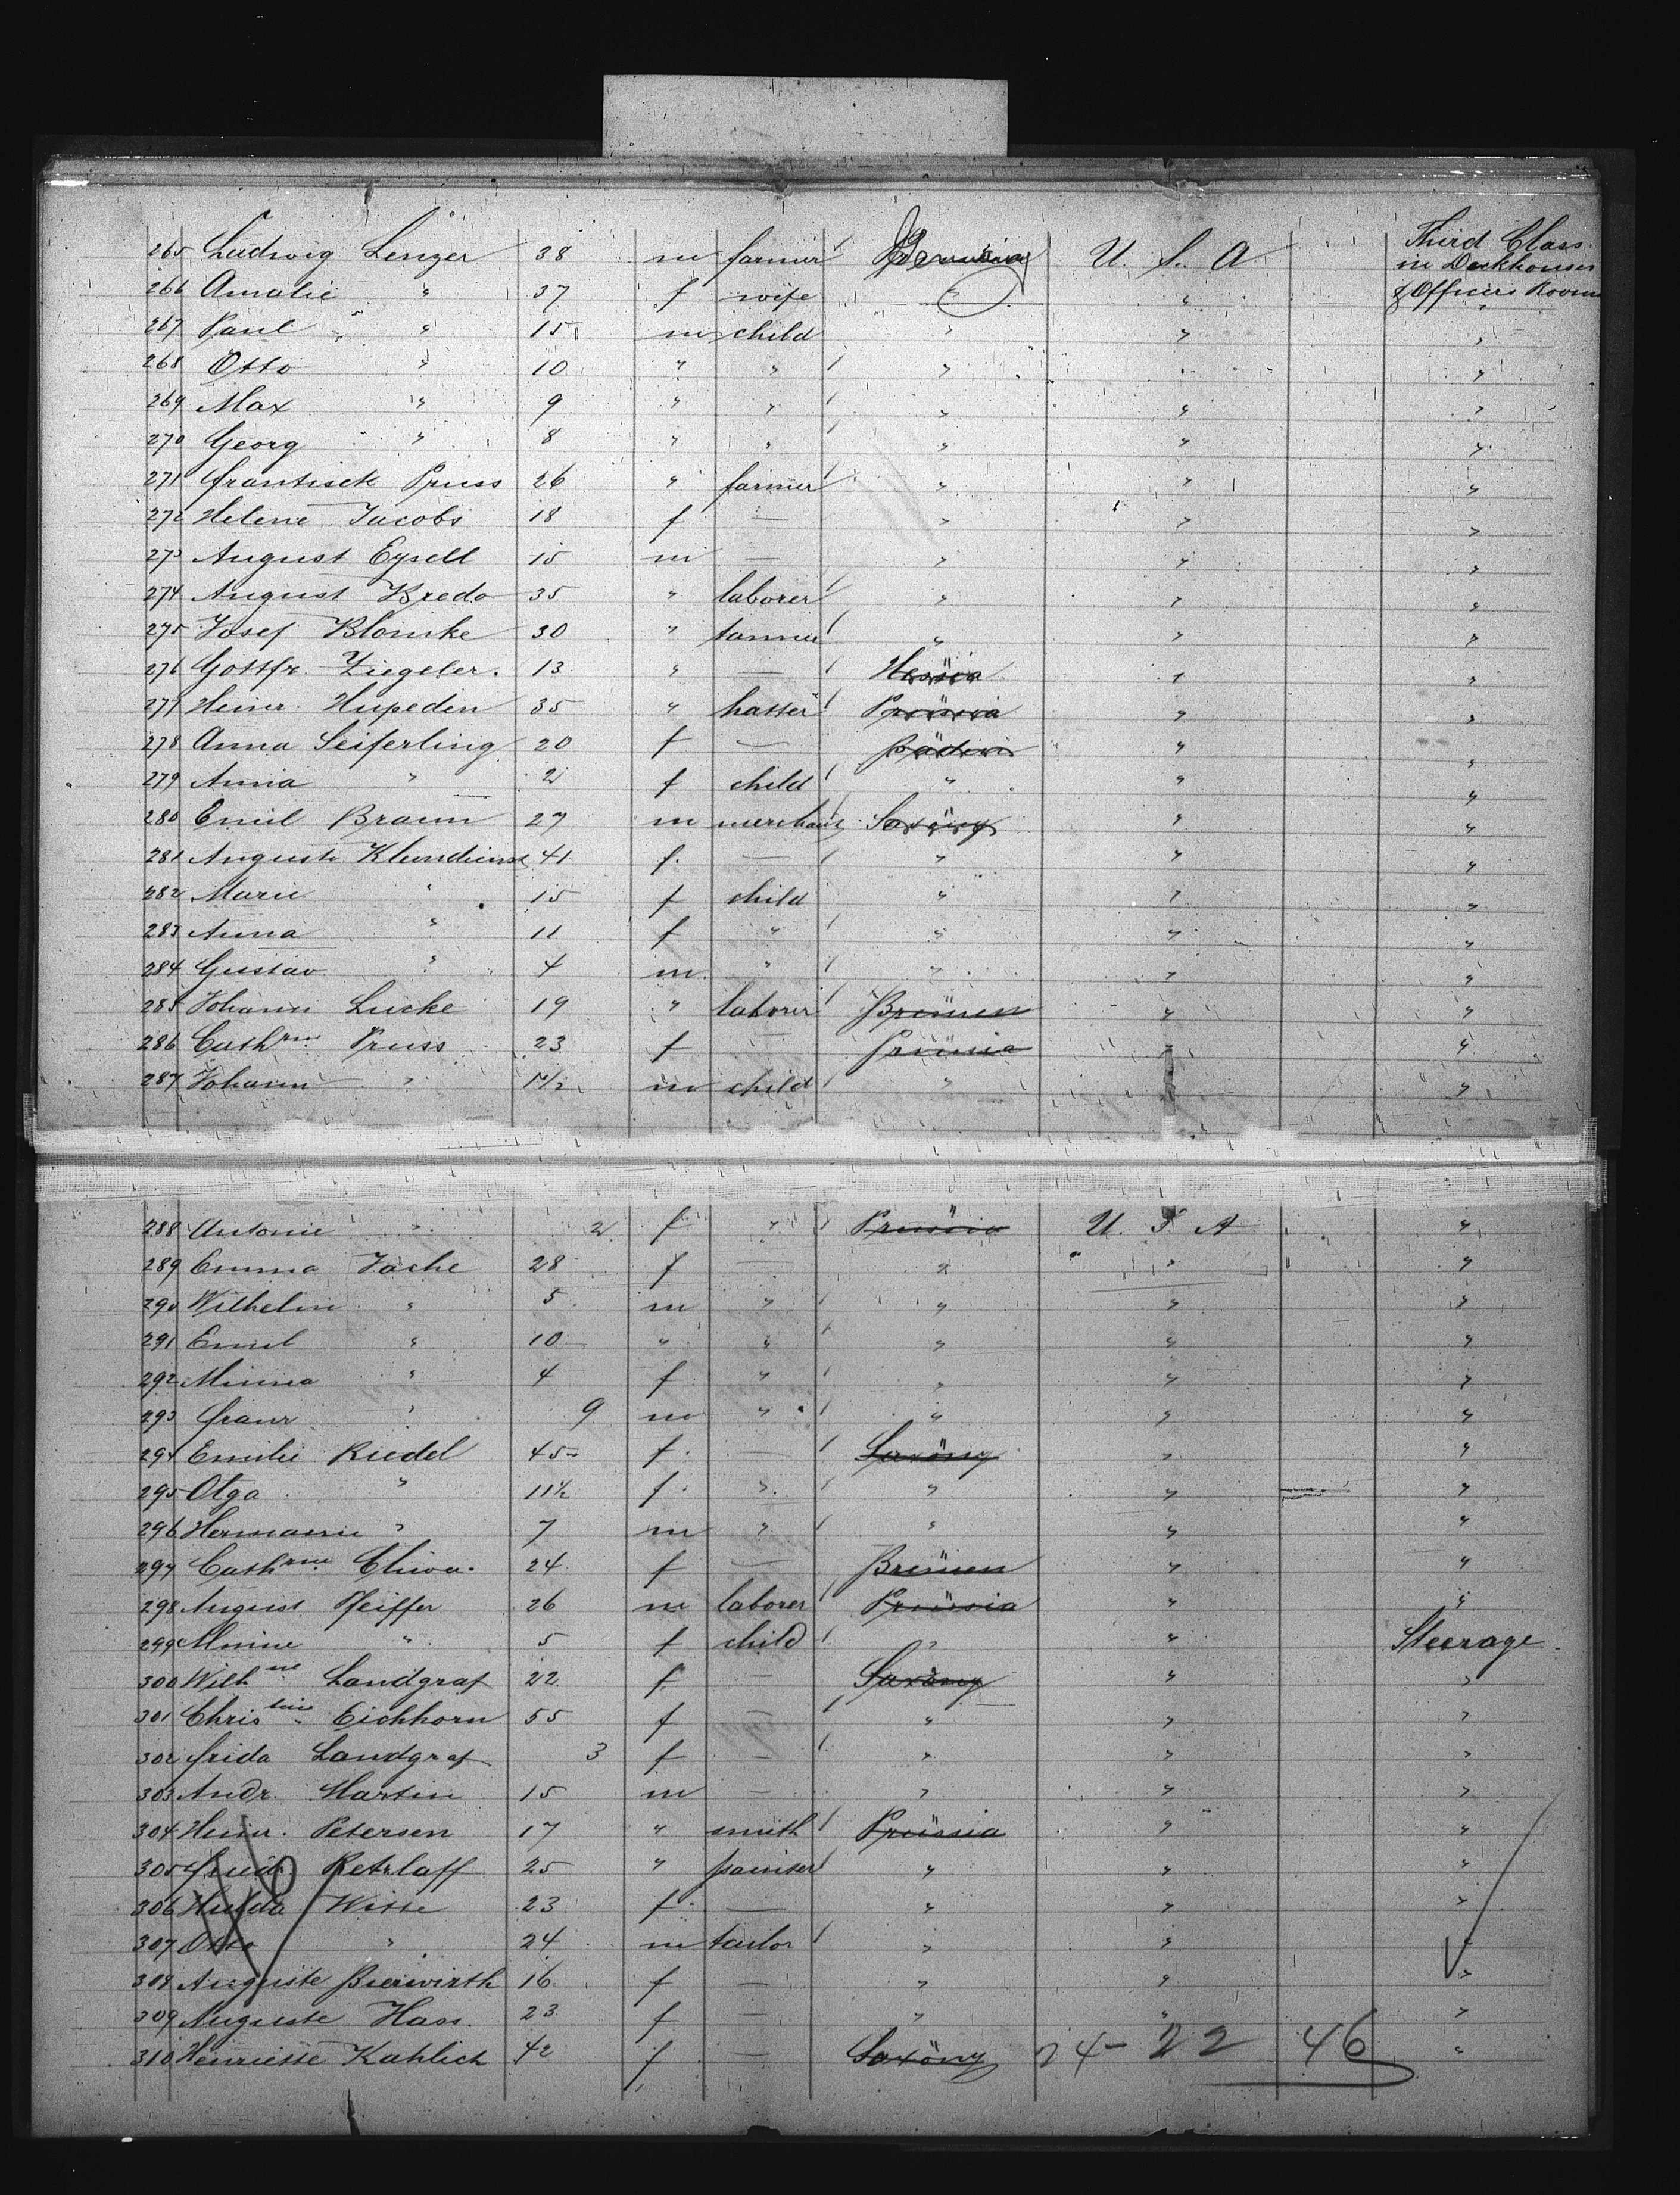 265 Ludwig Lenger 38 m farmer Germania U. S. A Third Class
in Deckhouses
266 Amalie " 37 f wife " " & Officers Rooms
267 Paul " 15 m child " " "
268 Otto " 10 " " " " "
269 Max " 9 " " " " "
270 Georg " 8 " " " " "
271 Frantisek Pruss 26 " farmer " " "
272 Helene Jacobs 18 f — " " "
273 August Eysell 15 m — " " "
274 August Kredo 35 " laborer " " "
275 Josef Blomke 30 " tanner " " "
276 Gottfr. Ziegeler. 13 " — Hessia " "
277 Heinr. Hupeden 35 " hatter Prussia " "
278 Anna Seiferling 20 f — " "
279 Anna " 2 f child " " "
280 Emil Braun 27 m merchant Saxony " "
281 Auguste 41 f. — " " "
282 Marie " 15 f child " " "
283 Anna " 11 f " " " "
284 Gustav " 4 m. " " " "
285 Johann Lucke 19 " laborer Bremen " "
286 Cathrne Pruss 23 f — Prussia " "
287 Johann " 1 1/2 m child " " "
288 Antonie " 2 f " Prussia U. S. A "
289 Emma Jache 28 f — " " "
290 Wilhelm " 5 m " " " "
291 Emil " 10 " " " " "
292 Minna " 4 f " " " "
293 Franz " 9 m " " " "
294 Emilie Riedel 45 f. — Saxony " "
295 Olga " 11 1/2 f. " " " "
296 Hermann " 7 m " " " "
297 Cathrne 24 f — Bremen " "
298 August Pfeiffer 26 m laborer Prussia " "
299 Minne " 5 f child " " Steerage
300 Wilhne Landgraf 22 f — Saxony " "
301 Christine Eichhorn 55 f — " " "
302 Frida Landgraf 3 f — " " "
303 Andr. Martin 15 m — " " "
304 Heinr. Petersen 17 " smith Prussia " "
305 Fried. Retzlaff 25 " painter " " "
306 Hulda Witte 23 f. — " " "
307 Otto " 24 m tailor " " "
308 Auguste Bierwirth 16 f — " " "
309 Auguste Hass. 23 f — " " "
310 Henriette Kahlich 42 f — Saxony 24-22 46 "